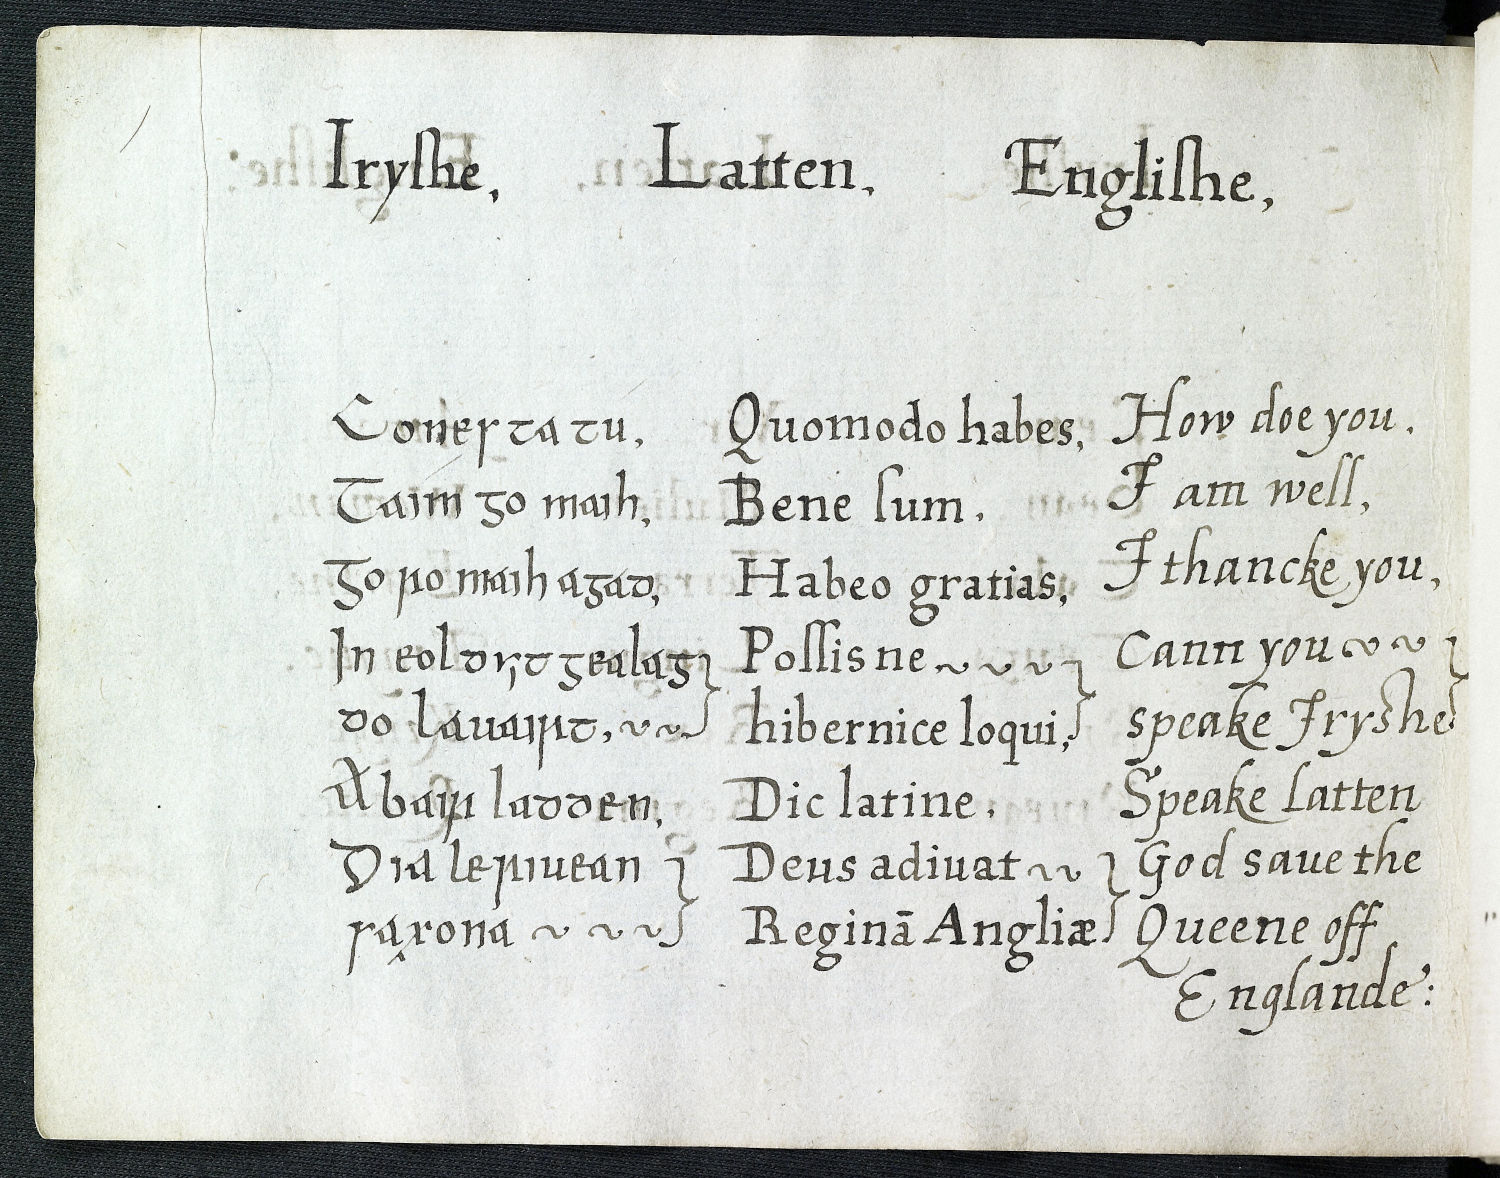 Iryſhe, Latten, Engliſhe,
Conerta tu, Quomodo habes, How doe you.
Taim go maih, Bene ſum. I am well,
Go ro maih agad, Habeo gratias, I thancke you,
In eol dhyt gealag Poſſis ne Cann you
do lauairt, hibernice loqui, speake Iryshe
Abair ladden, Dic latine. Speake Latten
Dia le riuean Deus adiuat God saue the
saxona Reginā Angliæ Queene off
Englande: